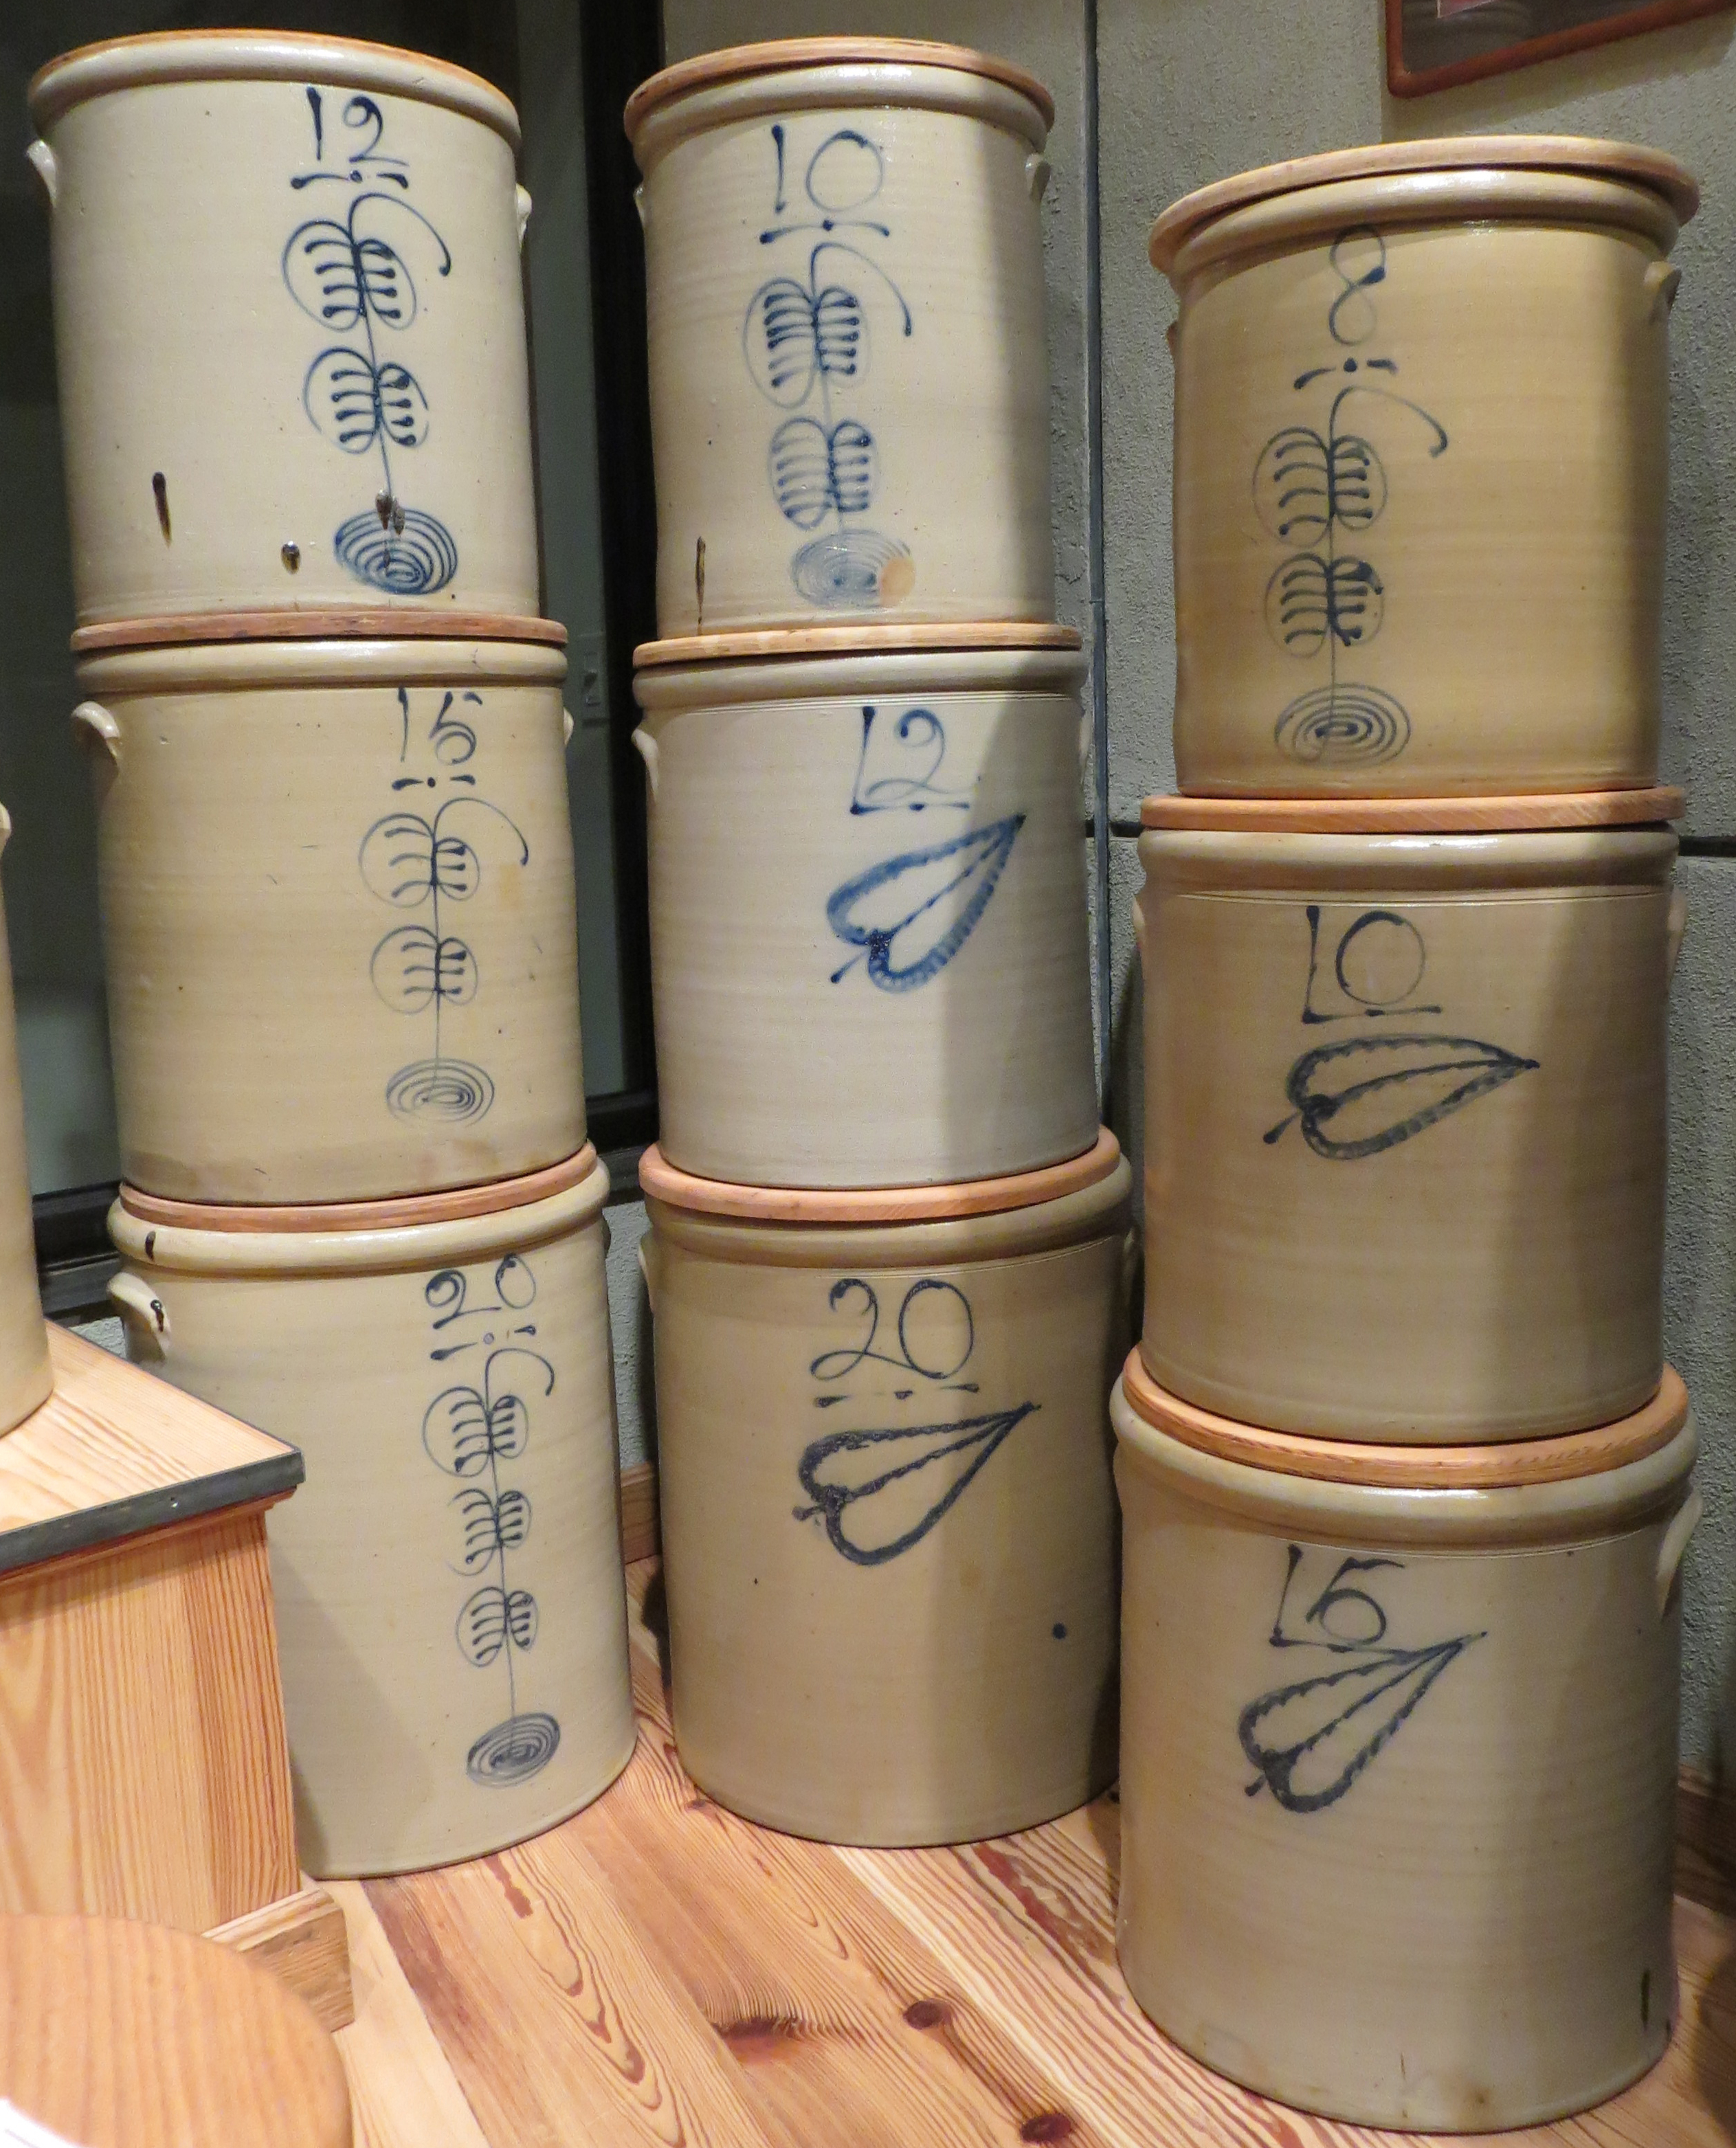 12
15
20
10
12
20
8
10
15